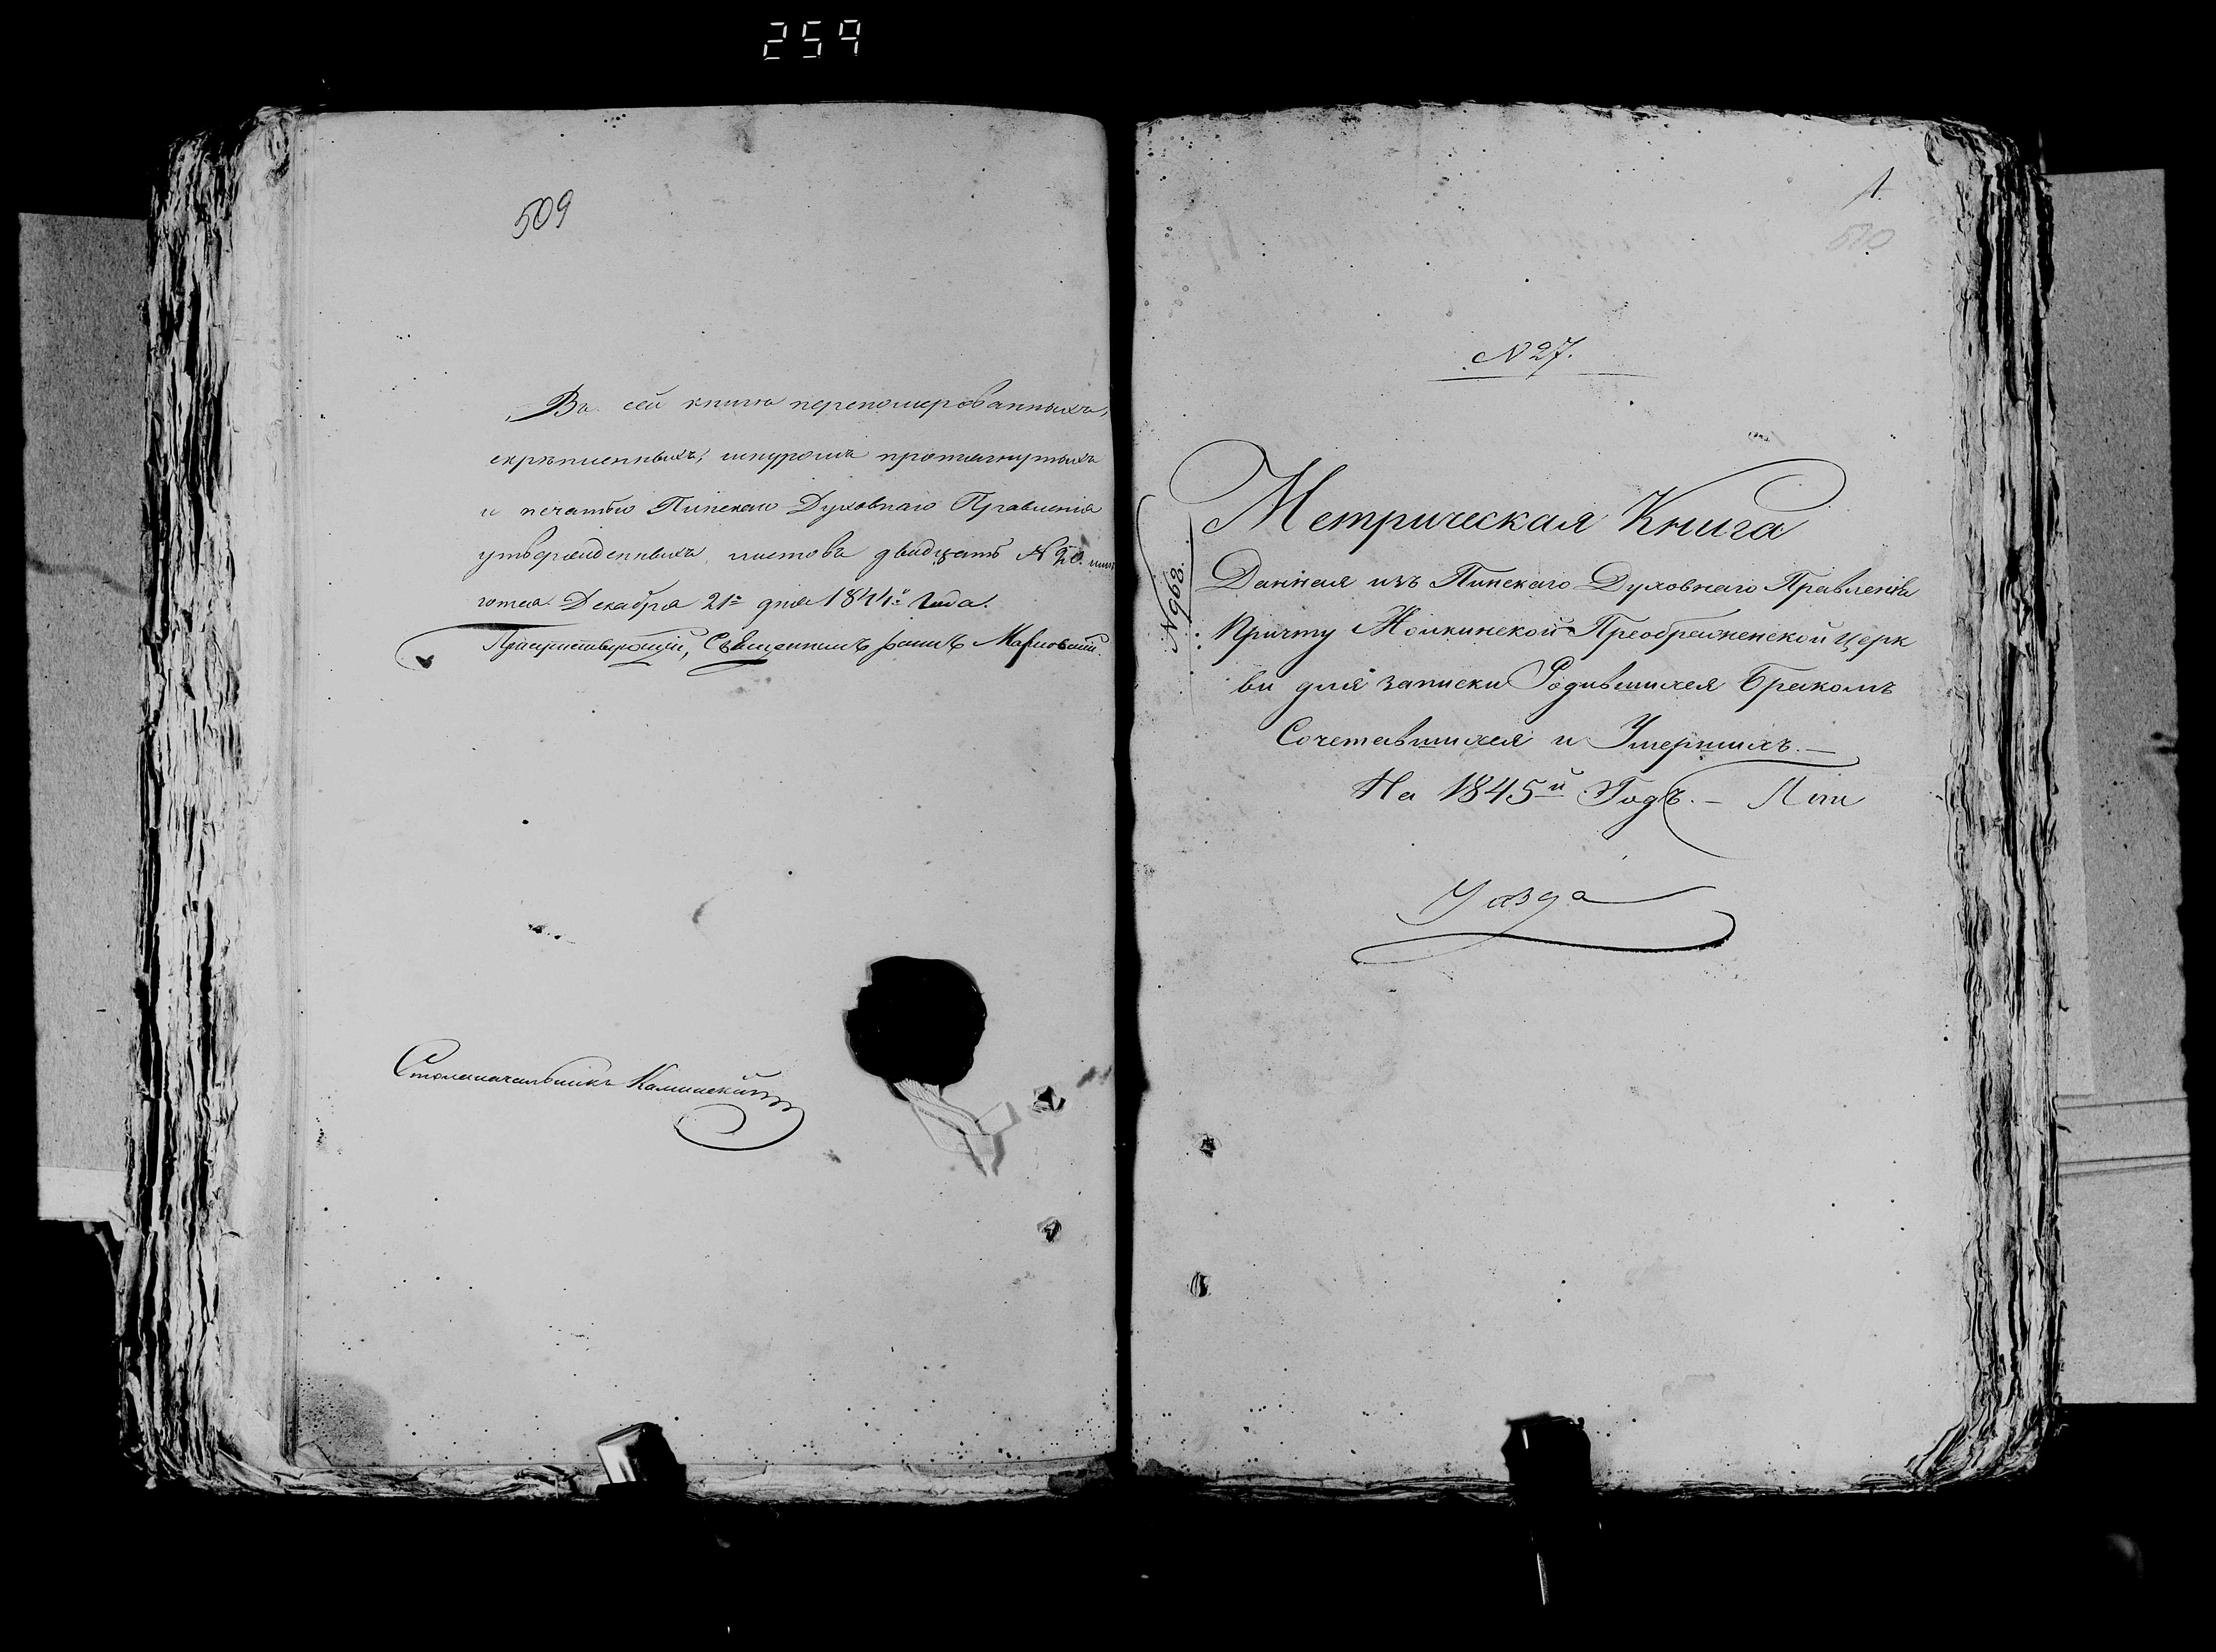 259
509
Въ сей книгѣ перенумерованныхъ,
скрѣпленныхъ, шнуромъ протянутыхъ
и печатью Пинскаго Духовнаго Правленія
утвержденныхъ листовъ двадцать № 20.
Декабря 21го дня 1844го Года.
Присутствующій, Священникъ
Столоначальникъ
1.
510
№ 27.
№ 968.
Метрическая Книга
Данная изъ Пинскаго Духовнаго Правленія
Причту Преображенской церк
ви для записки Родившихся Бракомъ
Сочетавшихся и Умершихъ. —
На 1845й Годъ. —
Уѣзда